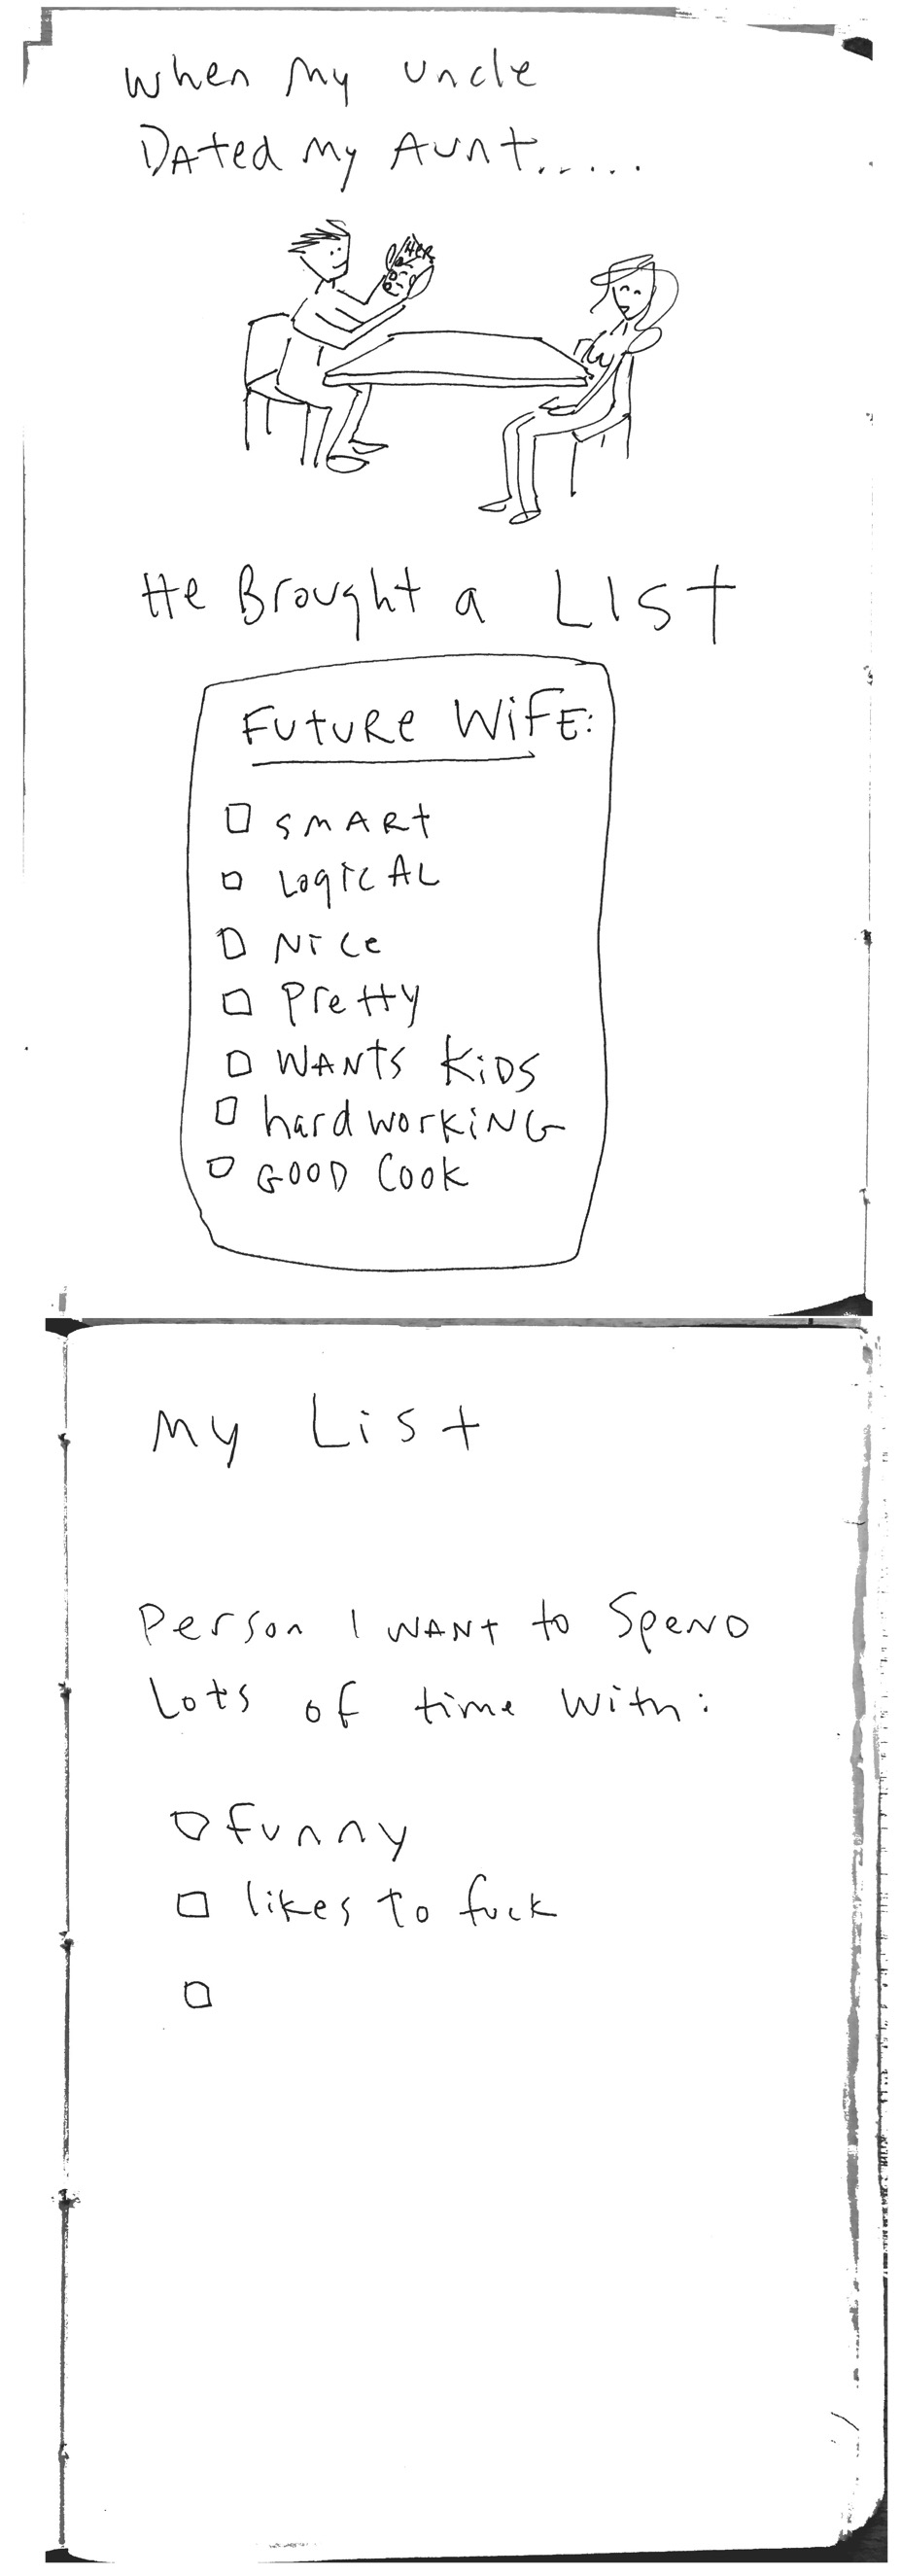 When My Uncle
DAted My AUnt......
HER
He Brought a LIst
FUtURe WiFE:
SMARt
LogicAL
Nice
Pretty
WANtS KiDS
hardworKiNG
GOOD Cook
My List
Person I WANt to SpenD
Lots of time With:
funny
likes to fuck